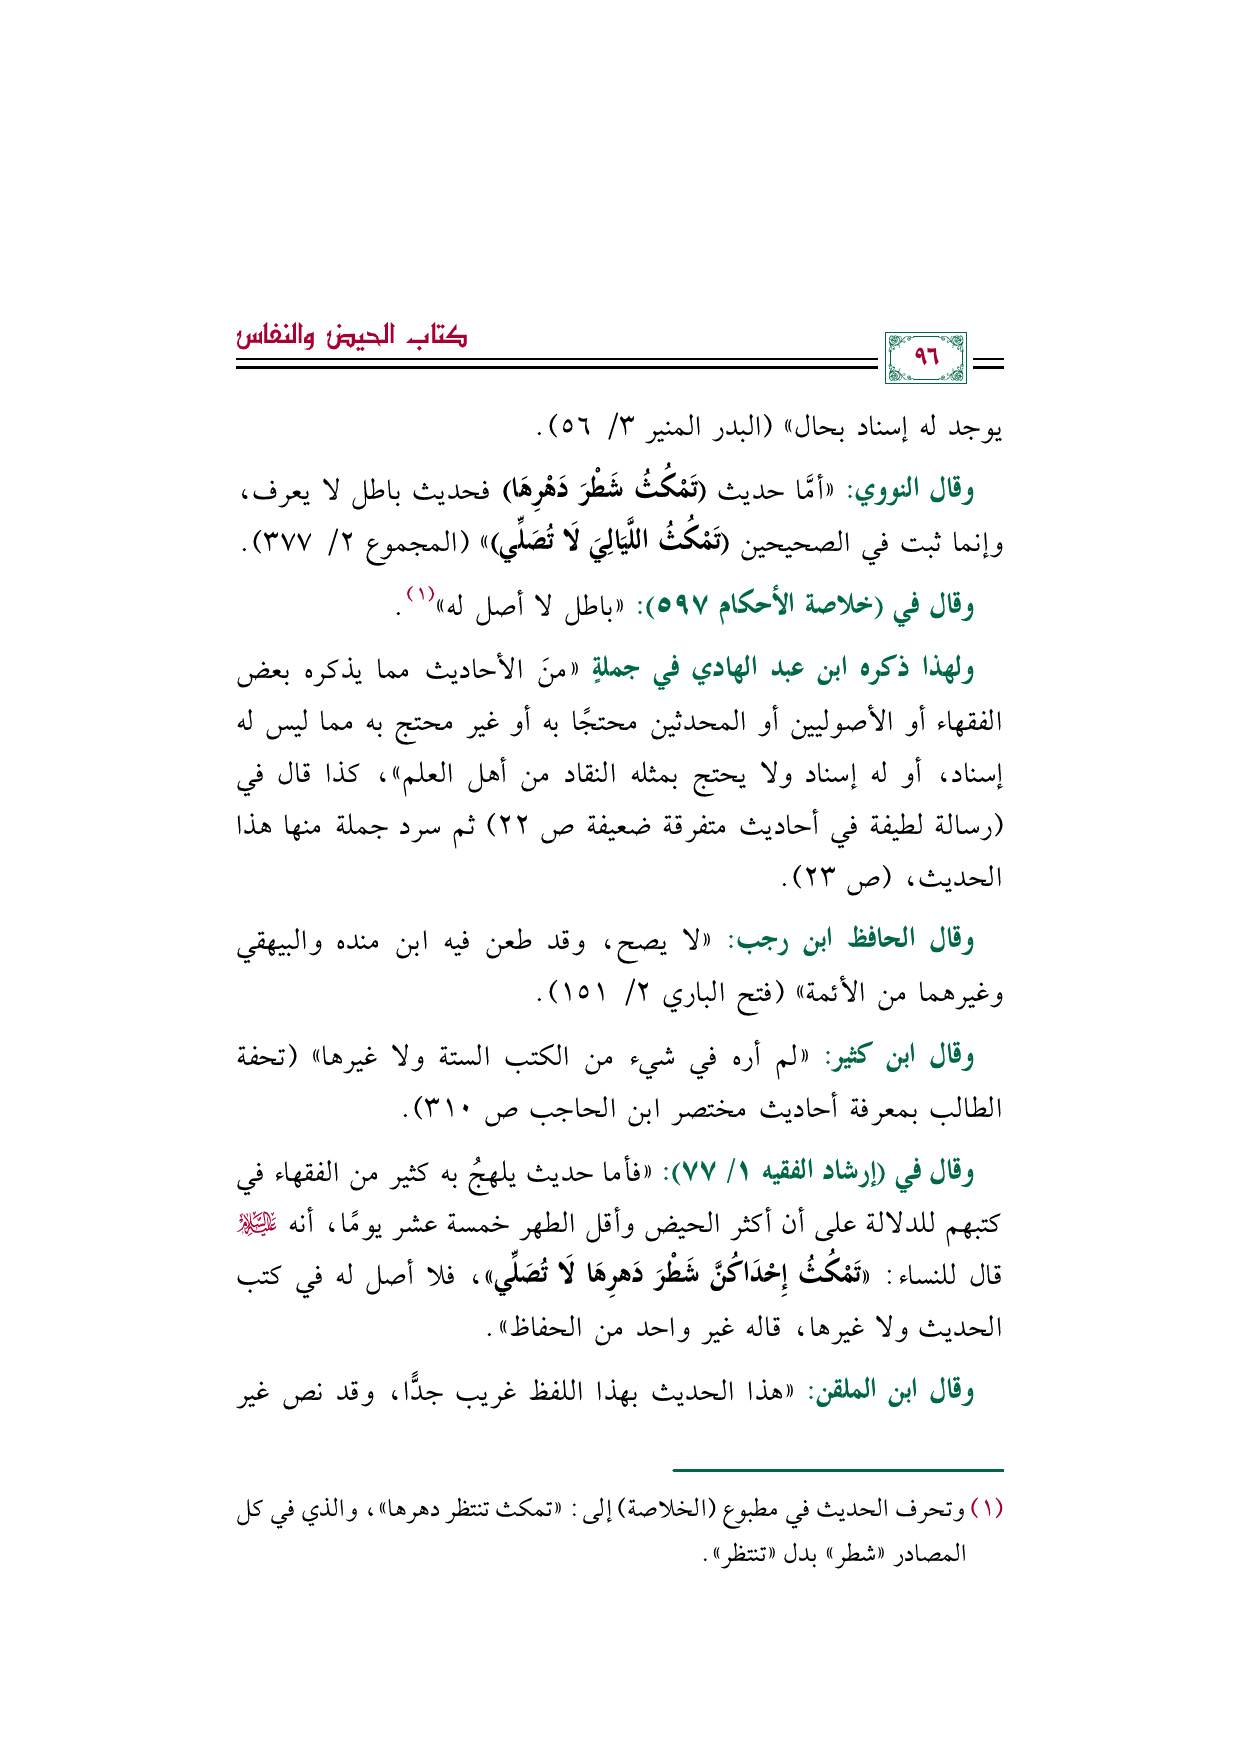 ٩٦
كتاب الحيض والنفاس
يوجد له إسناد بحال» (البدر المنير ٣/ ٥٦).
وقال النووي: «أمَّا حديث (تَمْكُثُ شَطْرَ دَهْرِهَا) فحديث باطل لا يعرف،
وإنما ثبت في الصحيحين (تَمْكُثُ اللَّيَالِيَ لَا تُصَلِّي)» (المجموع ٢/ ٣٧٧).
وقال في (خلاصة الأحكام ٥٩٧): «باطل لا أصل له»(١).
ولهذا ذكره ابن عبد الهادي في جملةٍ «منَ الأحاديث مما يذكره بعض
الفقهاء أو الأصوليين أو المحدثين محتجًا به أو غير محتج به مما ليس له
إسناد، أو له إسناد ولا يحتج بمثله النقاد من أهل العلم»، كذا قال في
(رسالة لطيفة في أحاديث متفرقة ضعيفة ص ٢٢) ثم سرد جملة منها هذا
الحديث، (ص ٢٣).
وقال الحافظ ابن رجب: «لا يصح، وقد طعن فيه ابن منده والبيهقي
وغيرهما من الأئمة» (فتح الباري ٢/ ١٥١).
وقال ابن كثير: «لم أره في شيء من الكتب الستة ولا غيرها» (تحفة
الطالب بمعرفة أحاديث مختصر ابن الحاجب ص ٣١٠).
وقال في (إرشاد الفقيه ١/ ٧٧): «فأما حديث يلهجُ به كثير من الفقهاء في
كتبهم للدلالة على أن أكثر الحيض وأقل الطهر خمسة عشر يومًا، أنه عليه السلام
قال للنساء: «تَمْكُثُ إِحْدَاكُنَّ شَطْرَ دَهرِهَا لَا تُصَلِّي»، فلا أصل له في كتب
الحديث ولا غيرها، قاله غير واحد من الحفاظ».
وقال ابن الملقن: «هذا الحديث بهذا اللفظ غريب جدًّا، وقد نص غير
(١) وتحرف الحديث في مطبوع (الخلاصة) إلى: «تمكث تنتظر دهرها»، والذي في كل
المصادر «شطر» بدل «تنتظر».